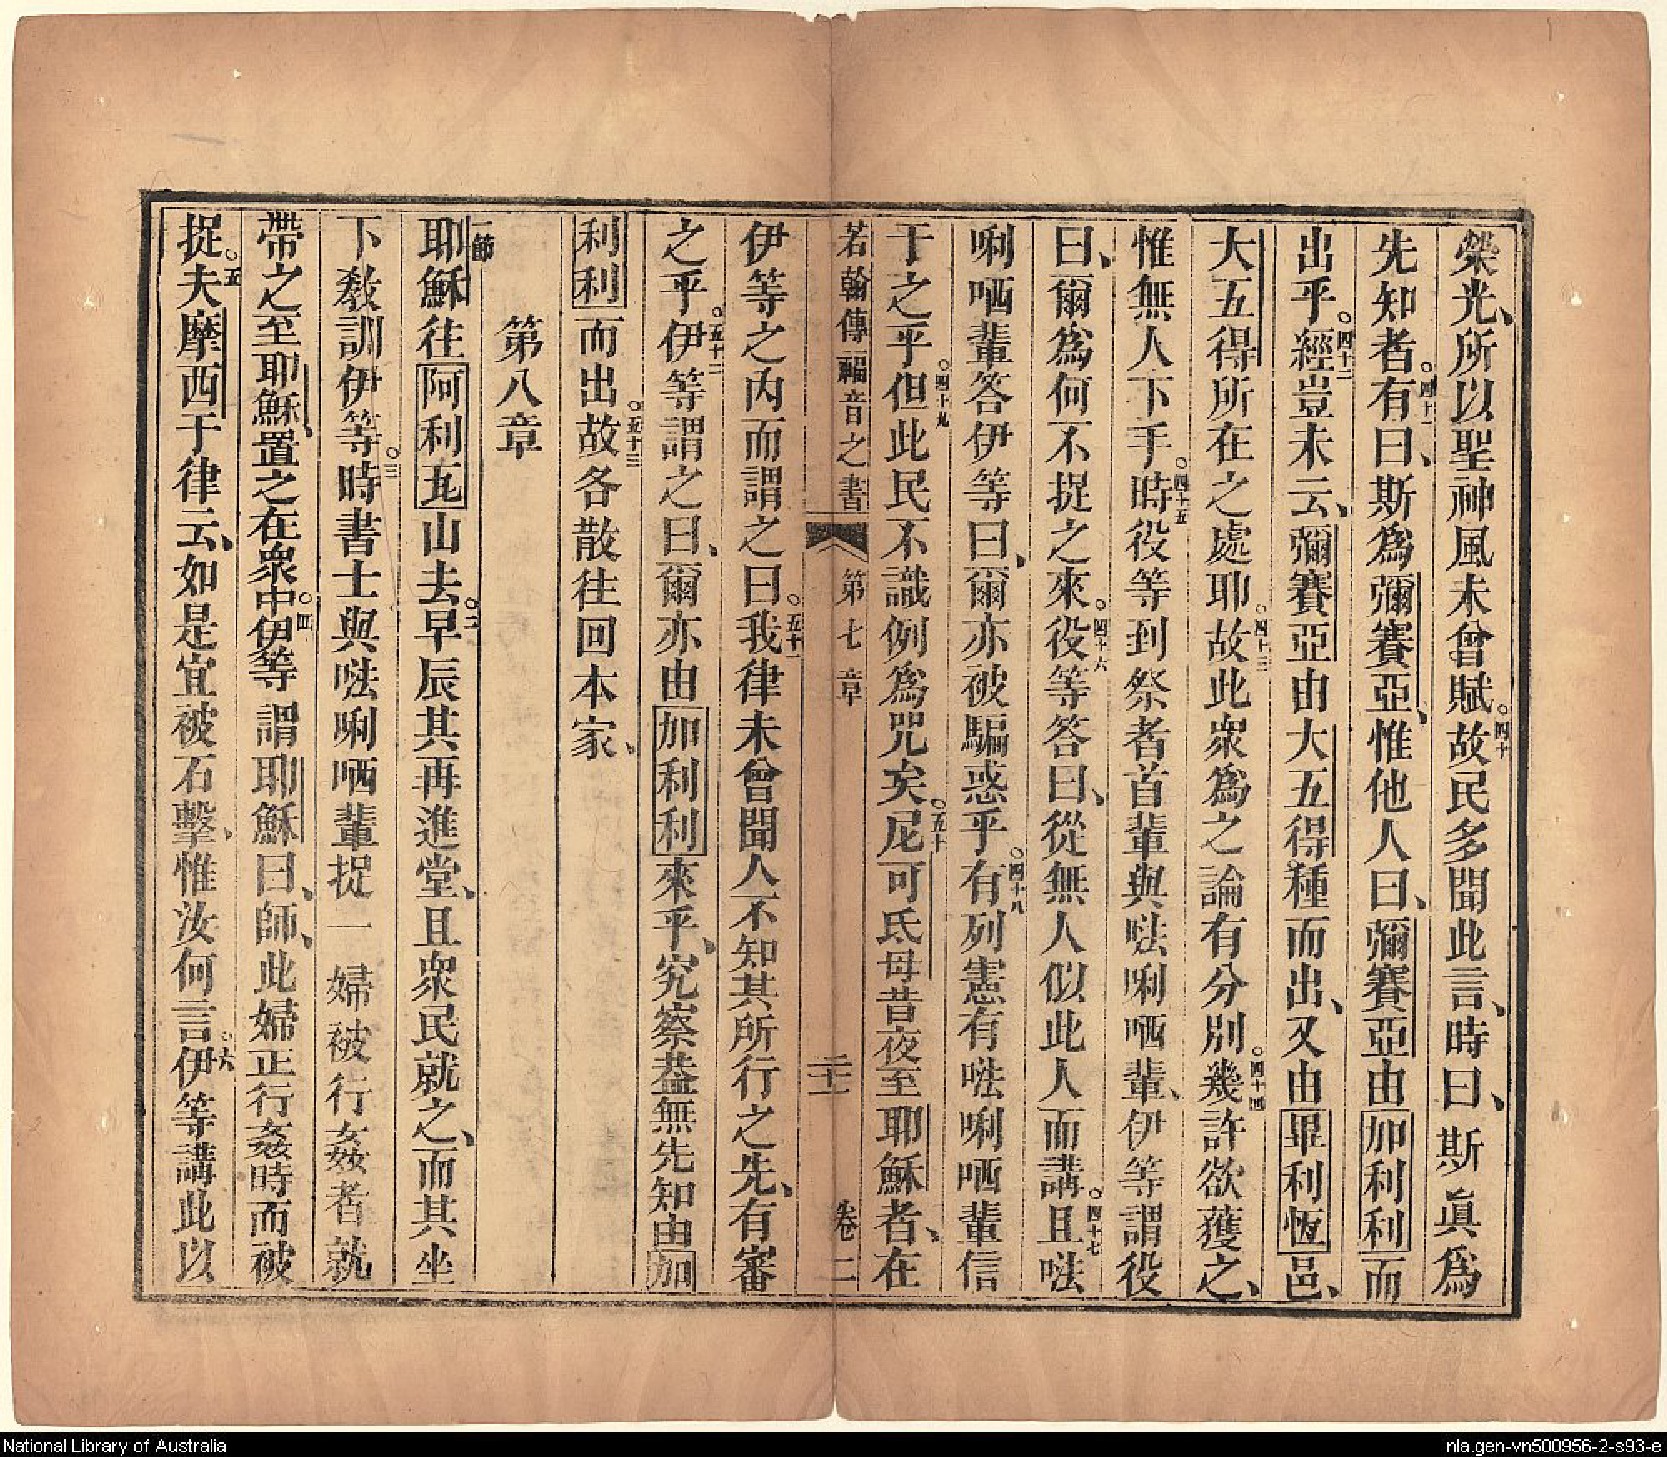 榮光、所以聖神風未曾賦。四十故民多聞此言、時曰、斯眞爲
先知者。四十一有曰、斯爲彌賽亞、惟他人曰、彌賽亞由加利利而
出乎。四十二經豈未云、彌賽亞由大五得種而出、又由畢利恆邑、
大五得所在之處耶。四十三故此衆爲之論有分別。四十四幾許欲獲之、
惟無人下手。四十五時役等到祭者首輩與𠵽唎哂輩、伊等謂役
曰、爾爲何不捉之來。四十六役等答曰、從無人似此人而講。四十七且𠵽
唎哂輩答伊等曰、爾亦被騙惑乎。四十八有列憲有𠵽唎哂輩信
于之乎。四十九但此民不識例爲咒矣。五十尼可氐母昔夜至耶穌者、在
若翰傳福音之書 第七章 二十一 卷二
伊等之內而謂之曰。五十一我律未曾聞人不知其所行之先、有審
之乎。五十二伊等謂之曰、爾亦由加利利來乎、究察葢無先知由加
利利而出。五十三故各散往回本家、
第八章
一節耶穌往阿利瓦山去。二早辰其再進堂、且衆民就之、而其坐
下敎訓伊等。三時書士與𠵽唎哂輩捉一婦被行姦者就
帶之至耶穌、置之在衆中。四伊等謂耶穌曰、師、此婦正行姦時而被
捉。五夫摩西于律云、如是宜被石擊、惟汝何言。六伊等講此以
National Library of Australia
nla.gen-vn500956-2-s93-e